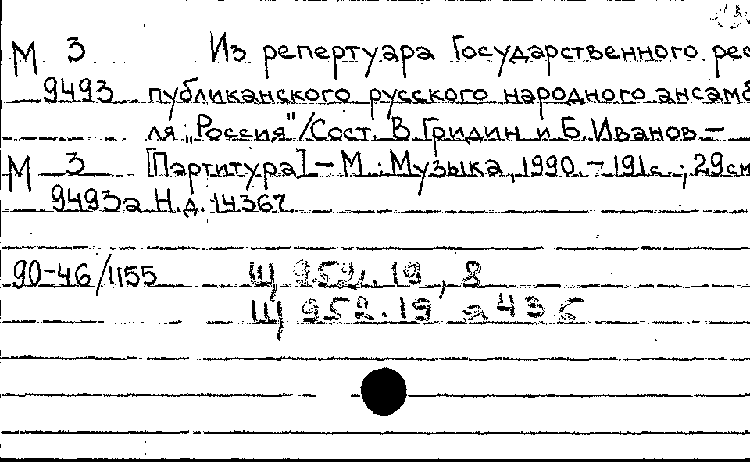 М 3 Из репертуара Государственного рес
9493 публиканского русского народного ансамб
ля „Россия"/Сост. В. Гридин и Б. Иванов.—
М 3 [Партитура] – М.: Музыка, 1990. – 191 с.; 29см
9493а Н.д. 14367
90-46/1155 Щ 952.19, 8
Щ 952.19